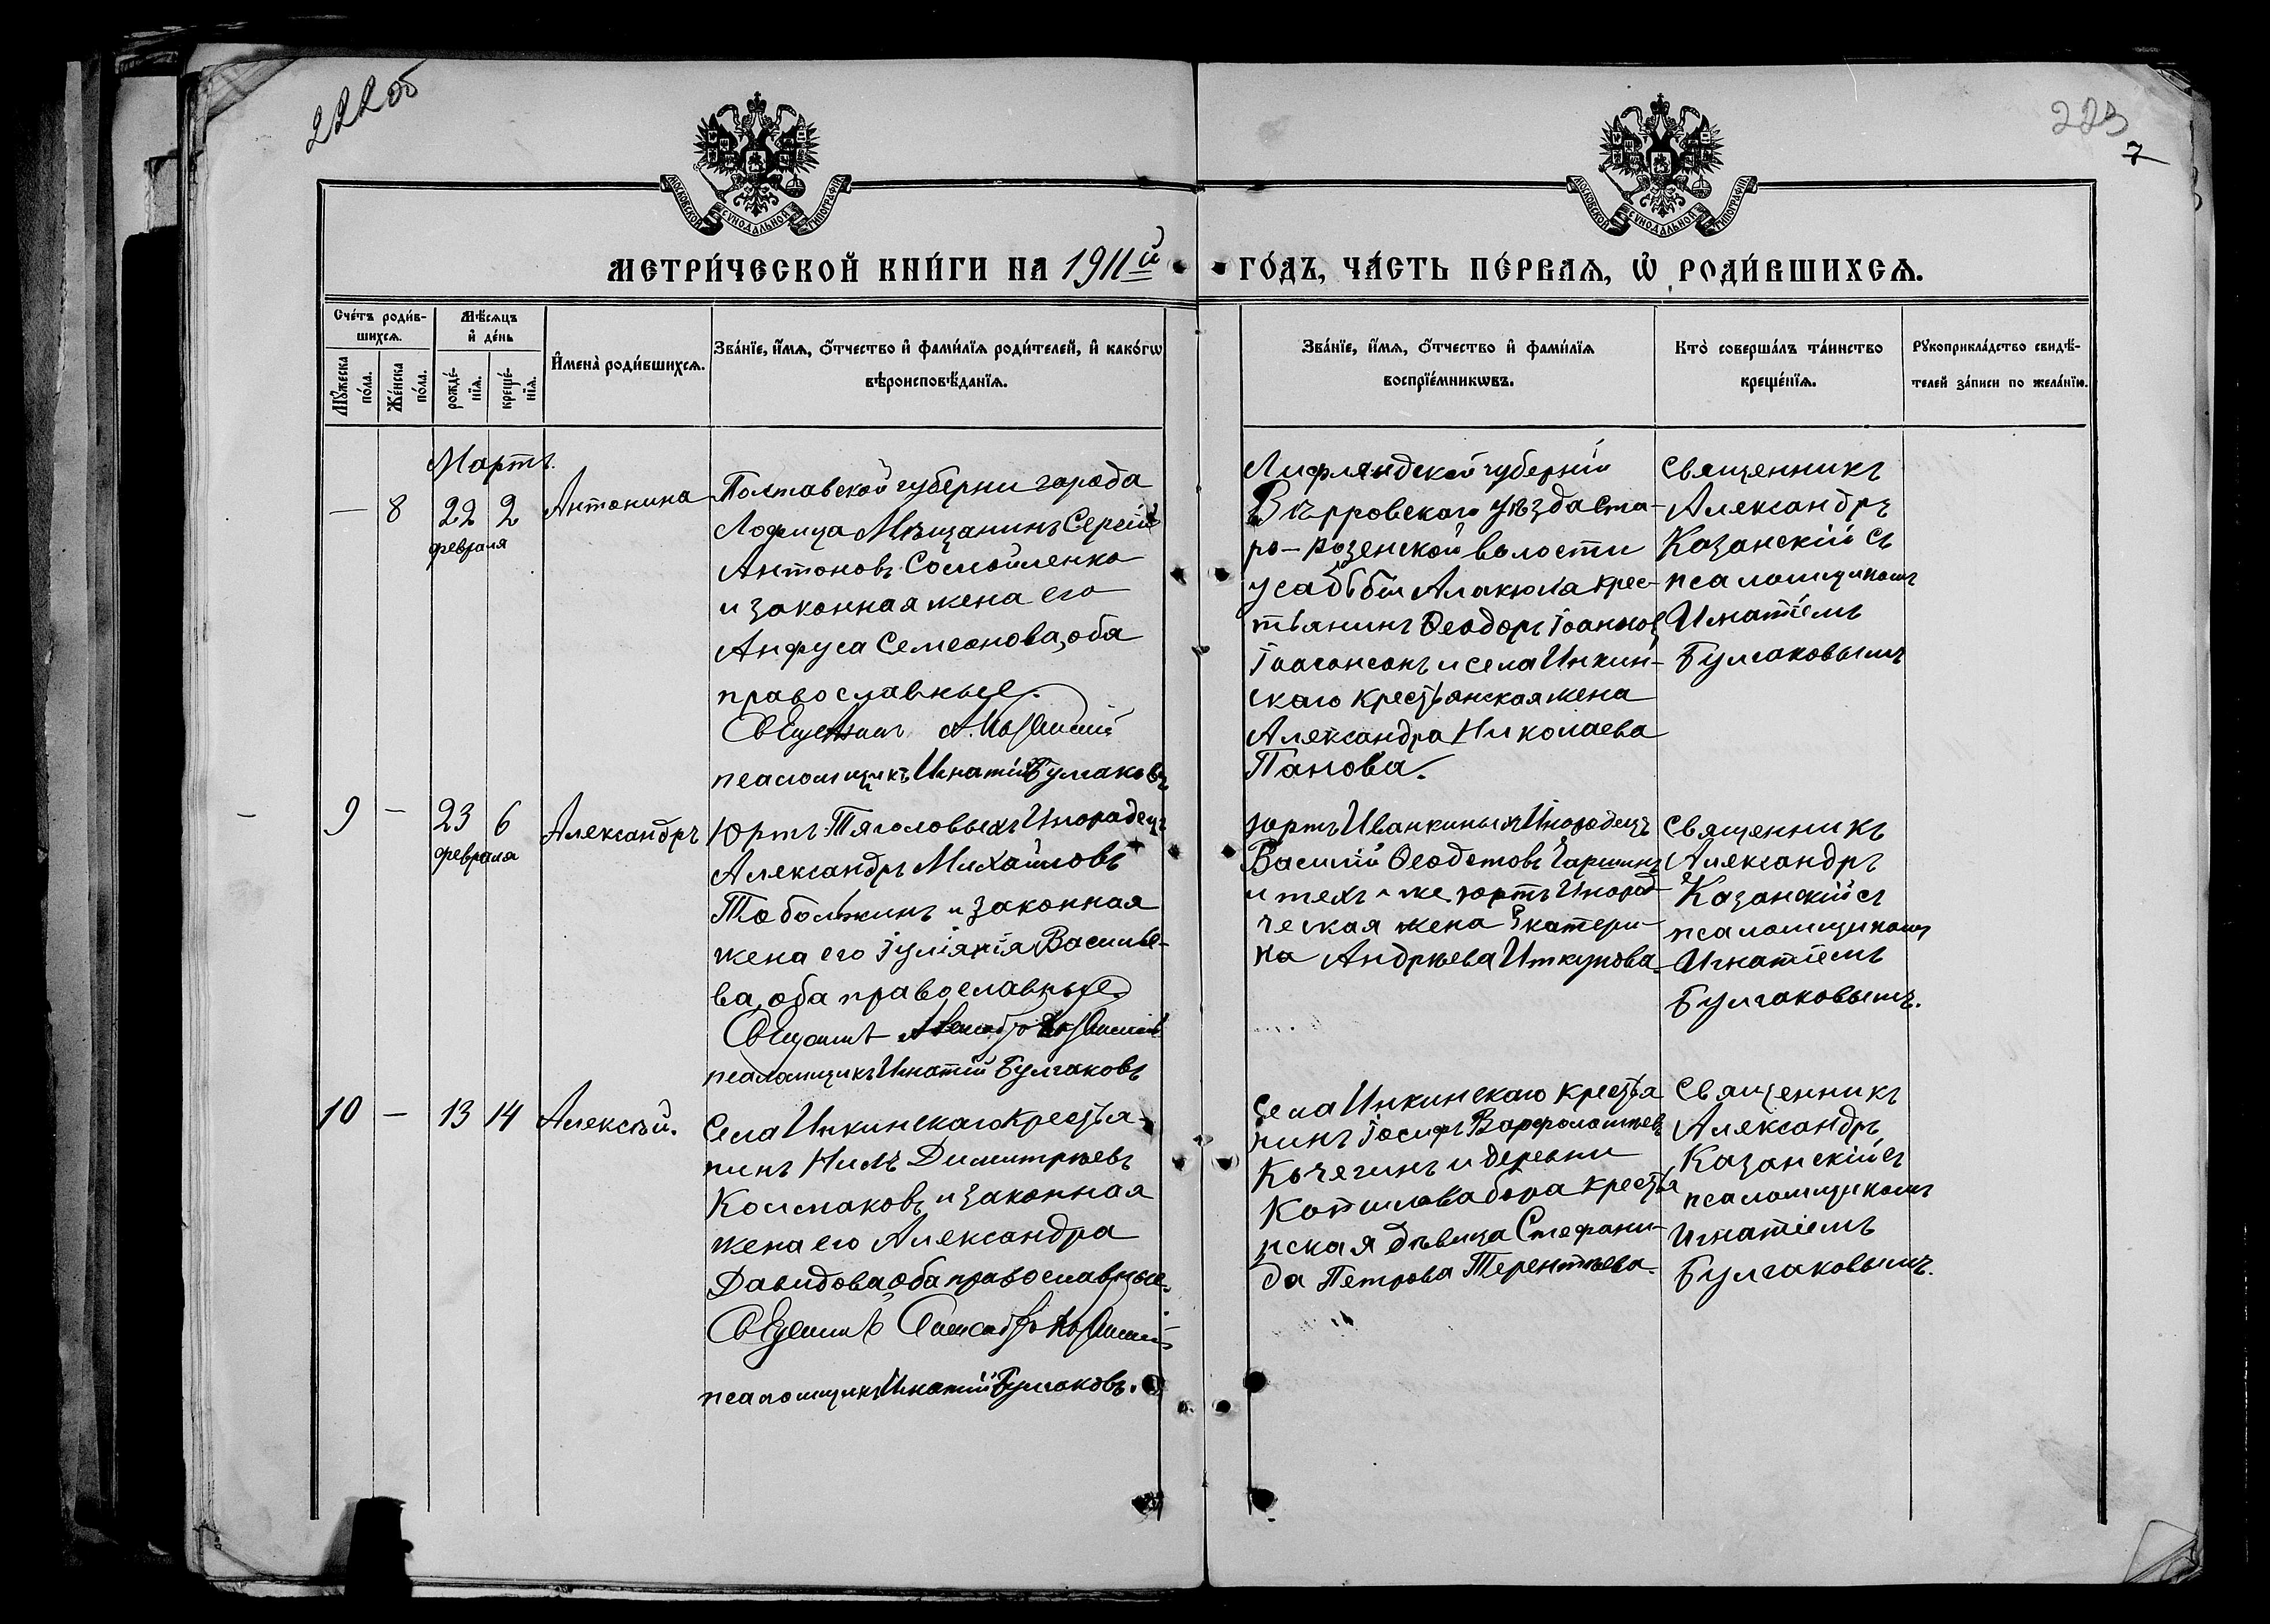 222об
223
7
МОСКОВСКОЙ СѴНОДАЛЬНОЙ ТИПОГРАФІИ
МОСКОВСКОЙ СѴНОДАЛЬНОЙ ТИПОГРАФІИ
МЕТРИ́ЧЕСКОЙ КНИ́ГИ НА 1911й
ГО́ДЪ, ЧА́СТЬ ПЕ́РВАѦ, Ѡ҆ РОДИ́ВШИХСѦ.
Сче́тъ роди́в-
шихсѧ.
Мѣ́сѧцъ
и҆ де́нь
Мꙋ́жеска
по́ла.
Же́нска
по́ла.
рожде́-
нїѧ.
креще́-
нїѧ.
И҆мена̀ роди́вшихсѧ.
Зва́нїе, и҆́мѧ, ѻ҆́тчество и҆ фами́лїѧ роди́телей, и҆ како́гѡ
вѣроисповѣ́данїѧ.
Зва́нїе, и҆́мѧ, ѻ҆́тчество и҆ фами́лїѧ
воспрїе́мникѡвъ.
Кто̀ соверша́лъ та́инство
креще́нїѧ.
Рꙋкоприкла́дство свидѣ́-
телей за́писи по жела́нїю.
Мартъ.
— 8 22 2
февраля
Антонина
Полтавской губерни города
Лофица Мѣщанинъ Сергій
Антоновъ Сомойленко
и законная жена его
Анфуса Семеонова, оба
православные.
Священникъ А. Казанскій
псаломщикъ Игнатій Булгаковъ
Лифляндской губерніи
Вѣрровского уѣзда Ста-
ро-Розенской волости
усадьбы Алакюла крес-
тьянинъ Ѳеодоръ Іоанновъ
и села Инкин-
скаго крестьянская жена
Александра Николаева
Панова.
Священникъ
Александръ
Казанскій съ
псаломщикомъ
Игнатіемъ
Булгаковымъ
9 — 23 6
февраля
Александръ
Юртъ Тяголовыхъ Инородецъ
Александръ Михайловъ
Тоболжинъ и законная
жена его Іуліанія Василье-
ва, оба православные.
Священникъ Александръ Казанскій
псаломщикъ Игнатій Булгаковъ
юртъ Иванкиныхъ Инородецъ
Василій Ѳеодотовъ
и техъ же юртъ Инород-
ческая жена Екатери-
на Андреева Иткупова.
Священникъ
Александръ
Казанскій съ
псаломщикомъ
Игнатіемъ
Булгаковымъ.
10 — 13 14 Алексѣй.
Села Инкинскаго крестья-
нинъ Нилъ Димитріевъ
Колмаковъ и законная
жена его Александра
Давидова, оба православные.
Священникъ Александръ Казанскій
псаломщикъ Игнатій Булгаковъ.
Села Инкинскаго крестья
нинъ Іосифъ Варфоломеевъ
Кочегинъ и деревни
Копыловабора крестья
нская дѣвица Стефани-
да Петрова Терентьева.
Священникъ
Александръ
Казанскій съ
псаломщикомъ
Игнатіемъ
Булгаковымъ.